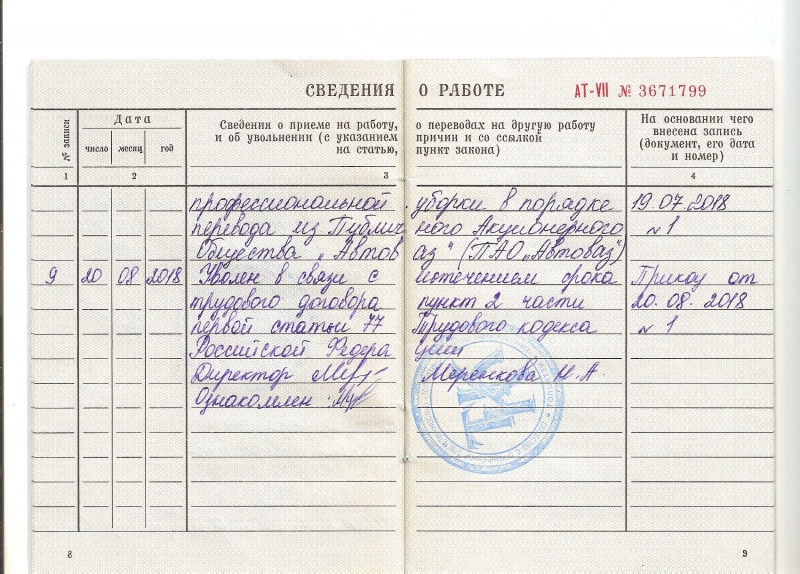 СВЕДЕНИЯ О РАБОТЕ АТ-VII № 3671799
№ записи
Дата
число месяц год
Сведения о приеме на работу, о переводах на другую работу
и об увольнении (с указанием причин и со ссылкой
на статью, пункт закона)
На основании чего
внесена запись
(документ, его дата
и номер)
1 2 3 4
профессиональной уборки в порядке 19.07.2018
перевода из Публичного Акционерного №1
Общества „Автоваз" (ПАО „Автоваз")
9 20 08 2018 Уволен в связи с истечением срока Приказ от
трудового договора пункт 2 части 20.08.2018
первой статьи 77 Трудового кодекса №1
Российской Федерации
Директор Меренкова Н.А.
Ознакомлен
8 9